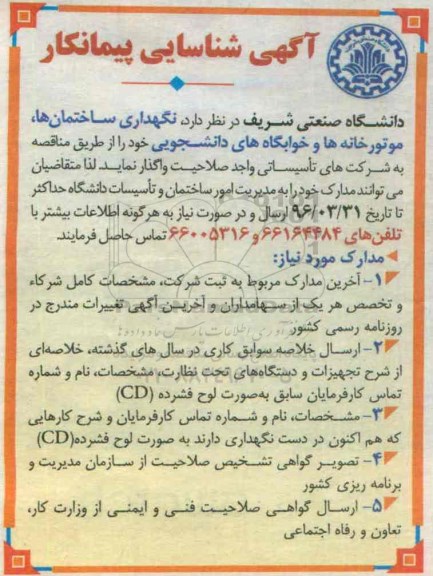 آگهی شناسایی پیمانکار
دانشگاه صنعتی شریف در نظر دارد، نگهداری ساختمان‌ها،
موتورخانه ها و خوابگاه های دانشجویی خود را از طریق مناقصه
به شرکت های تأسیساتی واجد صلاحیت واگذار نماید. لذا متقاضیان
می توانند مدارک خود را به مدیریت امور ساختمان و تأسیسات دانشگاه حداکثر
تا تاریخ ۹۶/۰۳/۳۱ ارسال و در صورت نیاز به هرگونه اطلاعات بیشتر با
تلفن‌های ۶۶۱۶۴۴۸۴ و ۶۶۰۰۵۳۱۶ تماس حاصل فرمایند.
مدارک مورد نیاز:
۱- آخرین مدارک مربوط به ثبت شرکت، مشخصات کامل شرکاء
و تخصص هر یک از سهامداران و آخرین آگهی تغییرات مندرج در
روزنامه رسمی کشور
۲- ارسال خلاصه سوابق کاری در سال های گذشته، خلاصه‌ای
از شرح تجهیزات و دستگاه‌های تحت نظارت، مشخصات، نام و شماره
تماس کارفرمایان سابق به‌صورت لوح فشرده (CD)
۳- مشخصات، نام و شماره تماس کارفرمایان و شرح کارهایی
که هم اکنون در دست نگهداری دارند به صورت لوح فشرده(CD)
۴- تصویر گواهی تشخیص صلاحیت از سازمان مدیریت و
برنامه ریزی کشور
۵- ارسال گواهی صلاحیت فنی و ایمنی از وزارت کار،
تعاون و رفاه اجتماعی